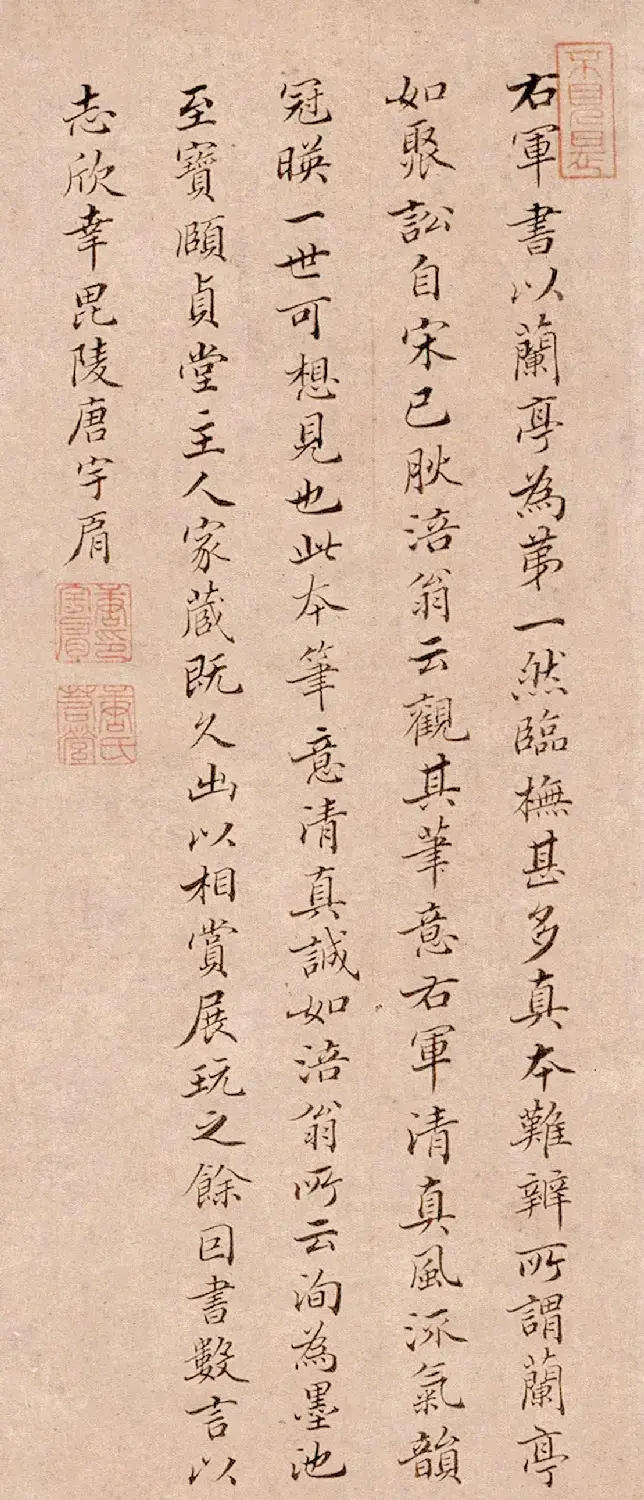 右軍書以蘭亭為苐一然臨橅甚多真本難辨所謂蘭亭
如聚訟自宋已肰涪翁云觀其筆意右軍清真風流氣韻
冠暎一世可想見也此本筆意清真誠如涪翁所云洵為墨池
至寶頤貞堂主人家藏既久出以相賞展玩之餘囙書數言以
志欣幸毘陵唐宇肩